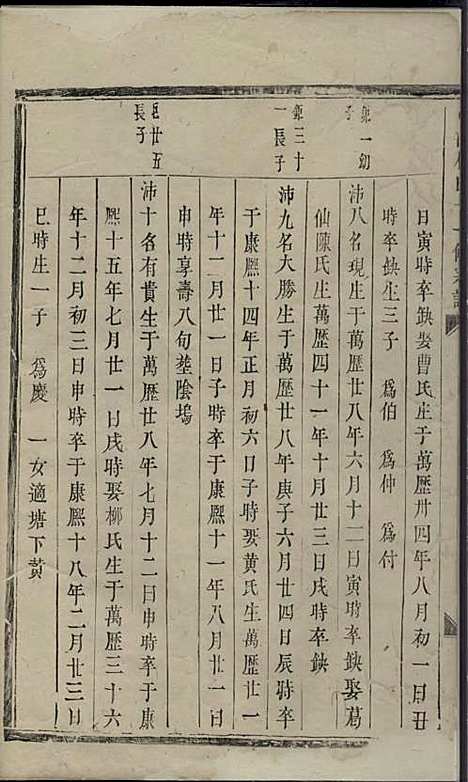 日寅時卒缺娶曹氏生于萬歷卅四年八月初一日丑
時卒缺生三子 為伯 為仲 為付
第一幼子
沛八名現生于萬歷廿八年六月十二日寅時卒缺娶葛
仙陳氏生萬歷四十一年十月廿三日戌時卒缺
第三十一長子
沛九名大勝生于萬歷廿八年庚子六月廿四日辰時卒
于康熙十四年正月初六日子時娶黃氏生萬歷廿一
年十一月廿一日子時卒于康熙十一年八月廿一日
申時享壽八旬塟陰塢
廿五長子
沛十名有貴生于萬歷廿八年七月十二日申時卒于康
熙十五年七月廿一日戌時娶柳氏生于萬歷三十六
年十二月初三日申時卒于康熙十八年二月廿三日
巳時生一子 為慶 一女適塘下黃